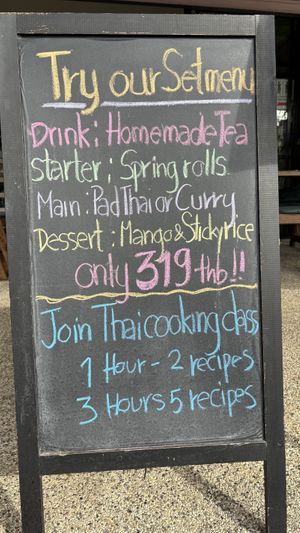 Try our Setmenu
Drink ; Homemade Tea
Starter ; Spring rolls
Main : Pad Thai or Curry
Dessert : Mango & Sticky rice
only 319 thb !!
Join Thai cooking class
1 Hour - 2 recipes
3 Hours 5 recipes